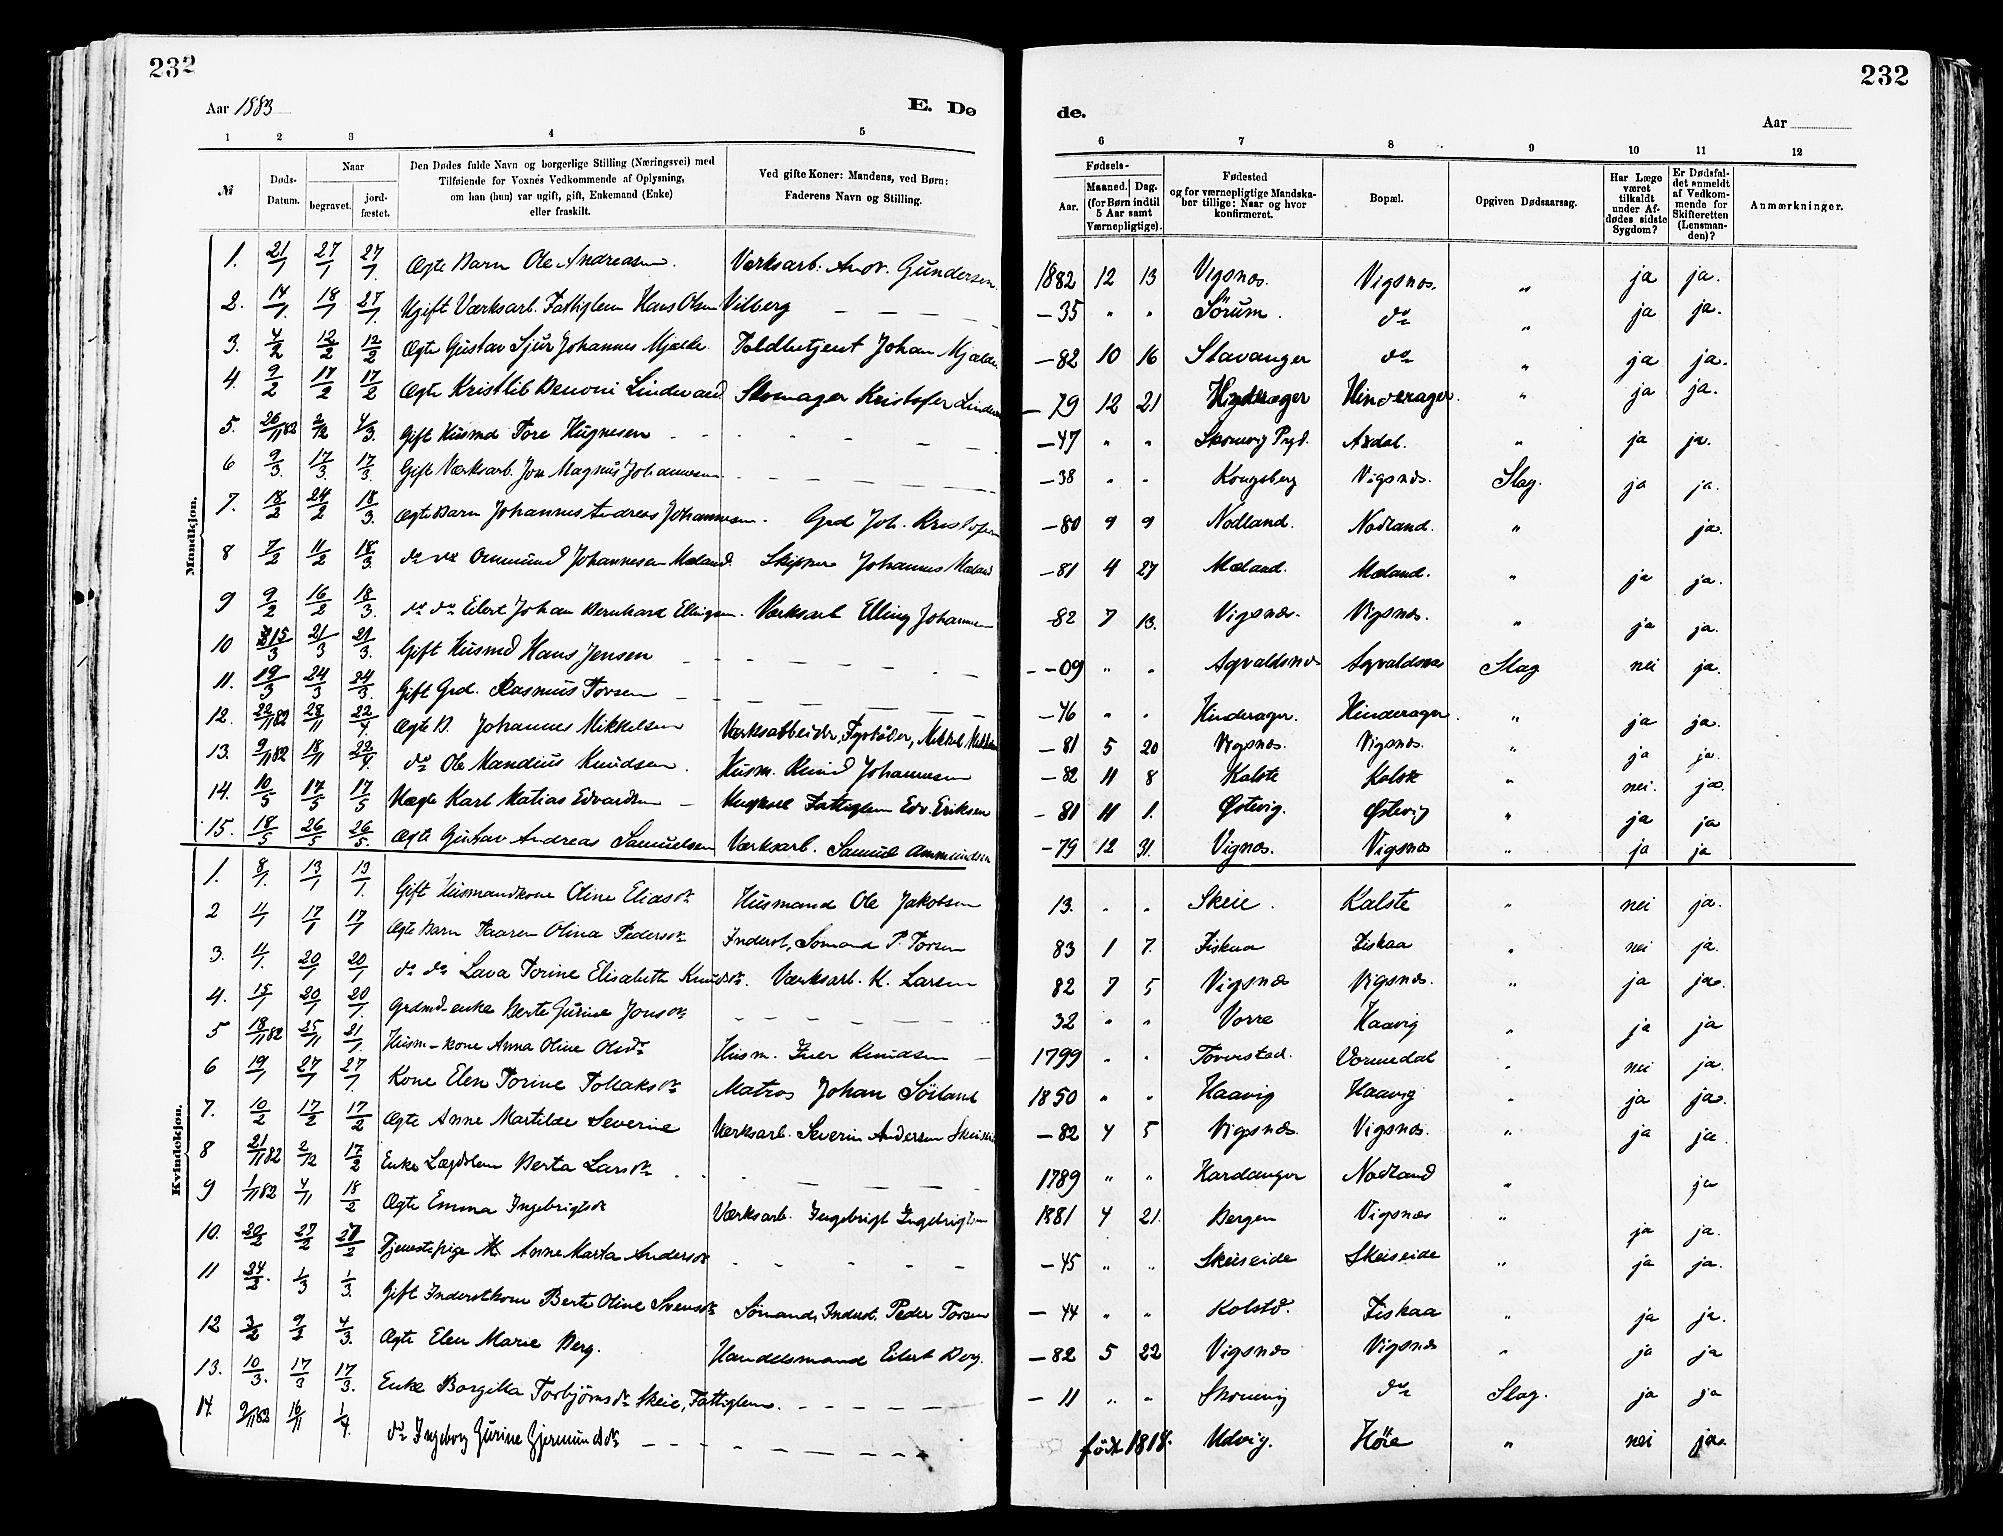 232
232
Aar 1883
E. De
de.
Aar
1 2 3 4 5 6 7 8 9 10 11 12
№
Døds-Datum.
Naar
begravet.
jordfæstet.
Den Dødes fulde Navn og borgerlige Stilling (Næringsvei) med
Tilføiende for Voxnes Vedkommende af Oplysning,
om han (hun) var ugift, gift, Enkemand (Enke)
eller fraskilt.
Ved gifte Koner: Mandens, ved Børn:
Faderens Navn og Stilling.
Fødsels-
Aar.
Maaned. Dag.
(for Børn indtil
5 Aar samt
Værnepligtige).
Fødested
og for værnepligtige Mandskaber tillige: Naar og hvor
konfirmeret.
Bopæl.
Opgiven Dødsaarsag.
Har Læge
været
tilkaldt
under Afdødes sidste
Sygdom?
Er Dødsfaldet anmeldt
af Vedkommende for
Skifteretten
(Lensmanden)?
Anmærkninger.
Mandkjøn.
1. 21/1 27/1 27/1. Ægte Barn Ole Andreasen. Værksarb. Andr. Gundersen 1882 12 13 Vigsnæs. Vigsnæs. " ja ja.
2. 14/1. 18/1 27/1. Ugift Værksarb. Fattiglem Hans Olsen Vilberg — — — — — 35 " " Sørum. do " ja ja.
3. 4/2 12/2 12/2 Ægte Gustav Sjur Johannes Mjelde. Toldbetjent Johan Mjelde — 82 10 16 Stavanger do " ja ja.
4. 9/2 17/2 17/2 Ægte Kristlib Benoni Lindevard Skomager Kristofer — 79 12 21 Hinderager Hinderager. " ja ja.
5. 26/11 82 2/12 4/3. Gift Husmd Tore Hugnesen — 47 " " Skonevig Pgd. Axdal. " ja ja.
6 9/3. 17/3. 17/3. Gift Værksarb. Jon Magnus Johannesen — 38 " " Kongsberg Vigsnæs. Slag. ja ja.
7. 18/2 24/2 18/3. Ægte Barn Johannes Andreas Johannesen. Grd Joh. Kristofersen — 80 9 9 Nodland. Nodland. " ja.
8 7/2 11/2 18/3 do do Ommund Johannesen Mæland. Skipper Johannes Mæland — 81 4 27 Mæland. Mæland. " ja ja.
9 9/2 16/2 18/3. do do Eilert Johan Bernhard Ellingsen. Værksarb Elling Johannesen 82 7 13. Vigsnæs. Vigsnæs. " ja ja.
10 15/3 21/3 21/3. Gift Husmd Hans Jensen — 09 " " Agvaldsnæs Agvaldsnæs Slag nei ja.
11. 19/3 24/3 24/3. Gift Grd. Rasmus Torsen — 46 " " Hinderager. Hinderager. " ja ja.
12. 22/11 82 28/11 22/4. Ægte B. Johannes Mikkelsen Værksarbeider, Fyrbøder, Mikkel — 81 5 20 Vigsnæs. Vigsnæs. " ja ja.
13. 9/11 82 18/11 22/4. do Ole Mandius Knudsen. Husm. Knud Johannesen — 82 11 8 Kalste Kalste " nei. ja.
14. 10/5 17/5 17/5 Uægte Karl Matias Edvardsen — Ungkarl Fattiglem Edv. Eriksen — 81 11 1. Østevig. Østevig " ja ja
15. 18/5 26/5 26/5. Ægte Gustav Andreas Samuelsen Værksarb. Samuel Ammundsen — 79 12 31. Vignæs. Vigsnæs " ja ja
Kvindekjøn.
1. 8/1. 13/1 13/1. Gift Husmandkone Oline Eliasdr Husmand Ole Jakobsen 13. " " Skeie. Kalste " nei ja.
2 11/1 17/1 17/1 Ægte Barn Taaren Olina Pedersdr Inderst, Sømand P. Torsen 83 1 7. Fiskaa Fiskaa " nei ja.
3. 11/1. 20/1 20/1 do do Lava Torine Elisabeth Knudsdr. Værksarb. K. Larsen 82 7 5 Vigsnæs Vigsnæs. " ja ja.
4. 15/1 20/1 20/1. Grdmd-enke Berte Gurine Jonsdr — — — — — 32 " " Vorre Haavig " ja ja
5 18/11 82 25/11 21/1. Husm-kone Anna Oline Olsdr Husm. Iver Knudsen — 1799 " " Torvestad. Vormedal " nei ja.
6 19/1 27/1 27/1. Kone Elen Torine Tollaksdr Matros Johan Søiland 1850 " " Haavig Haavig " ja ja.
7. 10/2 17/2 17/2 Ægte Anne Martilde Severine Værksarb. Severin Andersen — 82 4 5 Vigsnæs. Vigsnæs. " ja ja
8 21/11 82 2/12 17/2 Enke Lægdslem Berta Larsdr. 1789 " " Hardanger Nodland " ja
9 1/11 82 4/11 18/2 Ægte Emma Ingebrigtsdr Værksarb. Ingebrigt Ingebrigtsen 1881 4 21 Bergen Vigsnæs " ja ja.
10. 20/2 27/2 27/2 Tjenestepige Anne Marta Andersdr — 45 " " Skeiseide Skeiseide " ja ja.
11 24/2. 1/3 1/3. Gift Inderstkone Berte Oline Svensdr Sømand, Inderst. Peder Torsen — 44 " " Kolstø. Fiskaa " ja ja.
12 3/2 9/2 4/3. Ægte Elen Marie Berg. Handelsmand Eilert Berg. — 82 5 22 Vigsnæs Vigsnæs " ja ja
13. 10/3. 17/3 17/3. Enke Borgilla Torbjørnsdr Skeie, Fattiglem. — 11 " " Skonevig do Slag. ja ja
14. 9/11 82 16/11 1/4. do Ingeborg Gurine Gjermundsdr — — — født 1818. Udvig. Høie " nei ja.